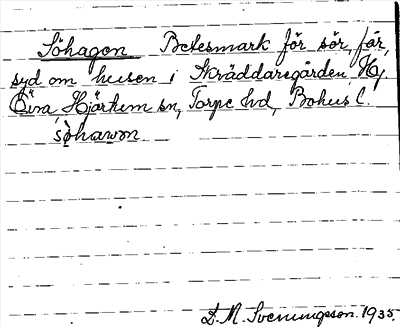 Söhagen Betesmark för sör, får,
syd om husen i Skräddaregården, Hj
Övra Hjärtum sn, Torpe hd, Bohus l.
söhawon
D. M. Svenungsson. 1935.